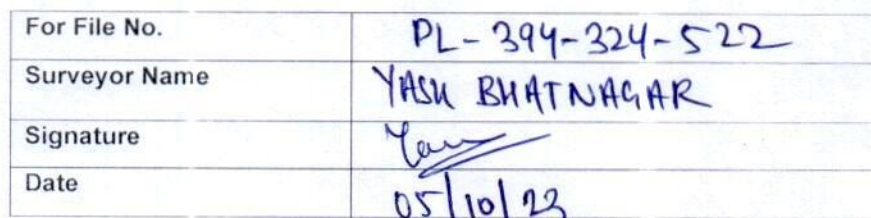 For File No. PL-394-324-522
Surveyor Name YASH BHATNAGAR
Signature
Date 05/10/23